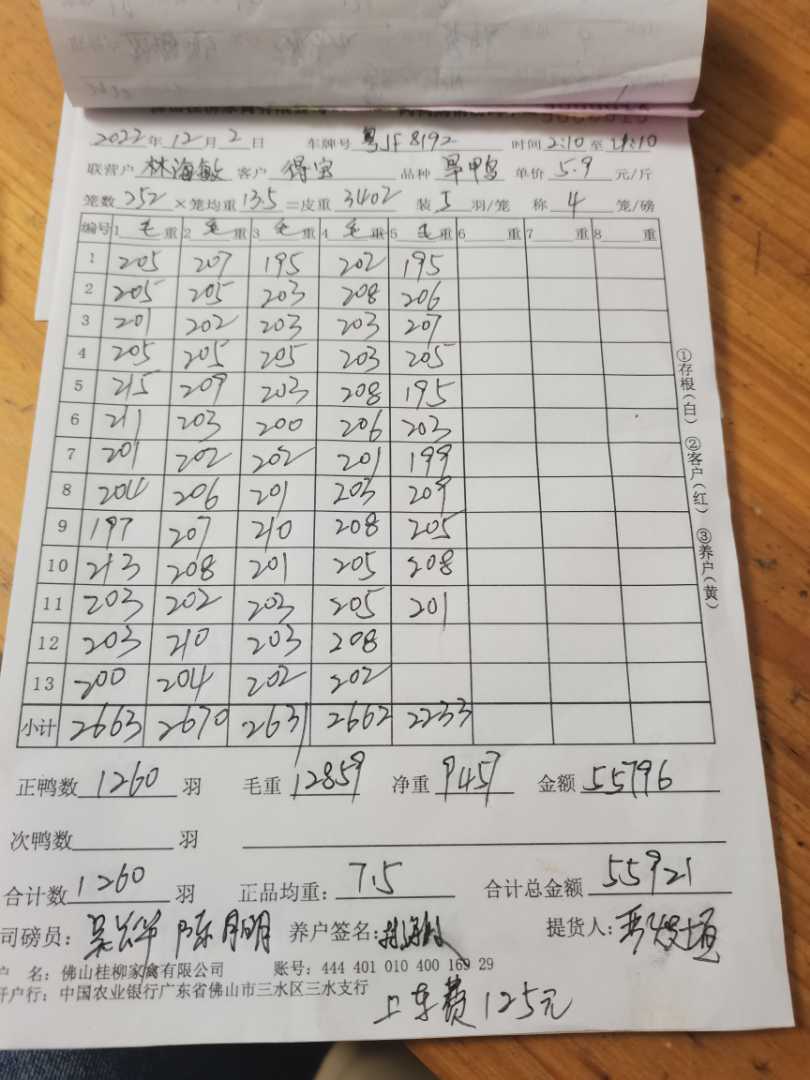 2022年12月2日 车牌号 粤JF8192 时间 2:10 至 4:10
联营户 林海敏 客户 得宝 品种 旱鸭 单价 5.9 元/斤
笼数 252 ×笼均重 13.5 =皮重 3402 装 5 羽/笼 称 4 笼/磅
编号 1 毛重 2 毛重 3 毛重 4 毛重 5 毛重 6 重 7 重 8 重
1 205 207 195 202 195
2 205 205 203 208 206
3 201 202 203 203 207
4 205 205 205 203 205
5 215 209 203 208 195
6 211 203 200 206 203
7 201 202 202 201 199
8 204 206 201 203 209
9 197 207 210 208 205
10 213 208 201 205 208
11 203 202 203 205 201
12 203 210 203 208
13 200 204 202 202
小计 2663 2670 2631 2662 2233
①存根(白) ②客户(红) ③养户(黄)
正鸭数 1260 羽 毛重 12859 净重 9457 金额 55796
次鸭数 羽
合计数 1260 羽 正品均重: 7.5 合计总金额 55921
司磅员: 陈月明 养户签名: 林海敏 提货人:
户 名: 佛山桂柳家禽有限公司 账号: 444 401 010 400 169 29
开户行: 中国农业银行广东省佛山市三水区三水支行
上车费125元